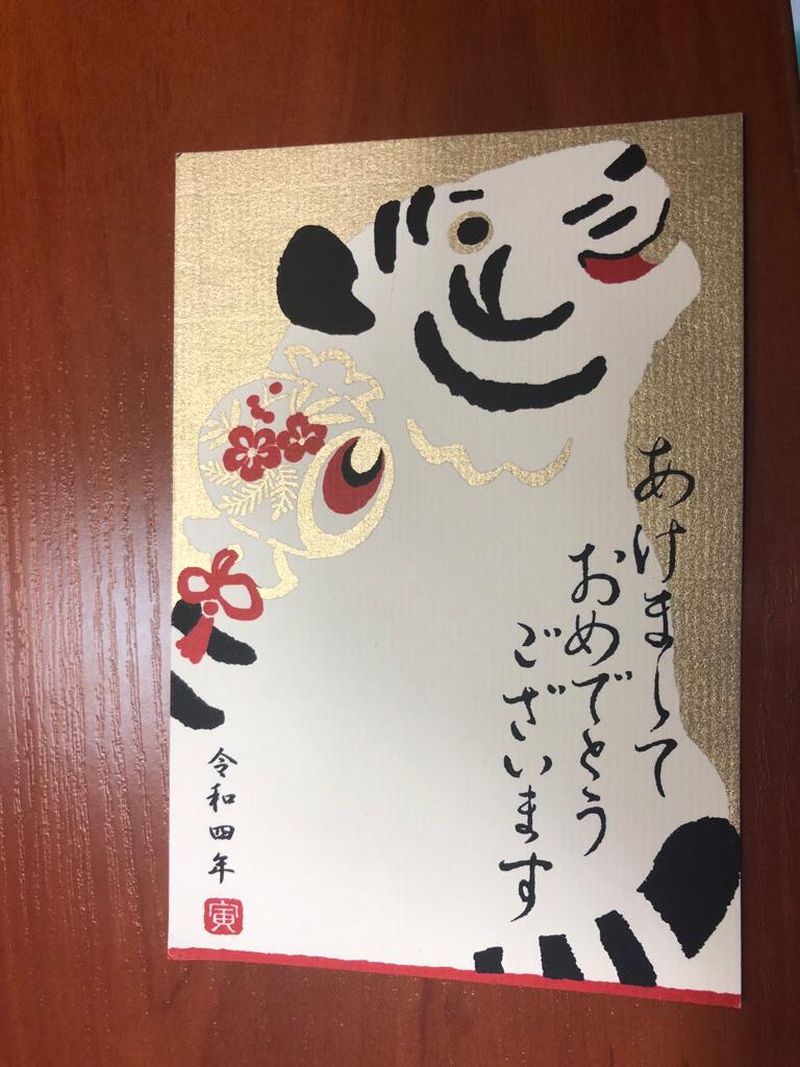 あけまして
おめでとう
ございます
令和四年
寅